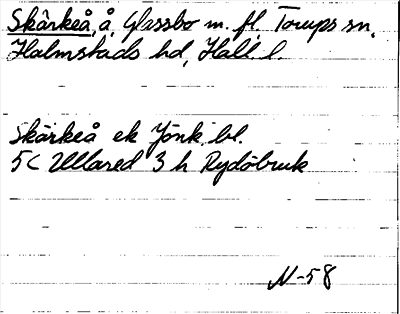 Skärkeå, å, Glassbo m. fl. Torups sn,
Halmstads hd, Hall. l.
Skärkeå ek Jönk. bl.
5C Ullared 3 h Rydöbruk
N-58